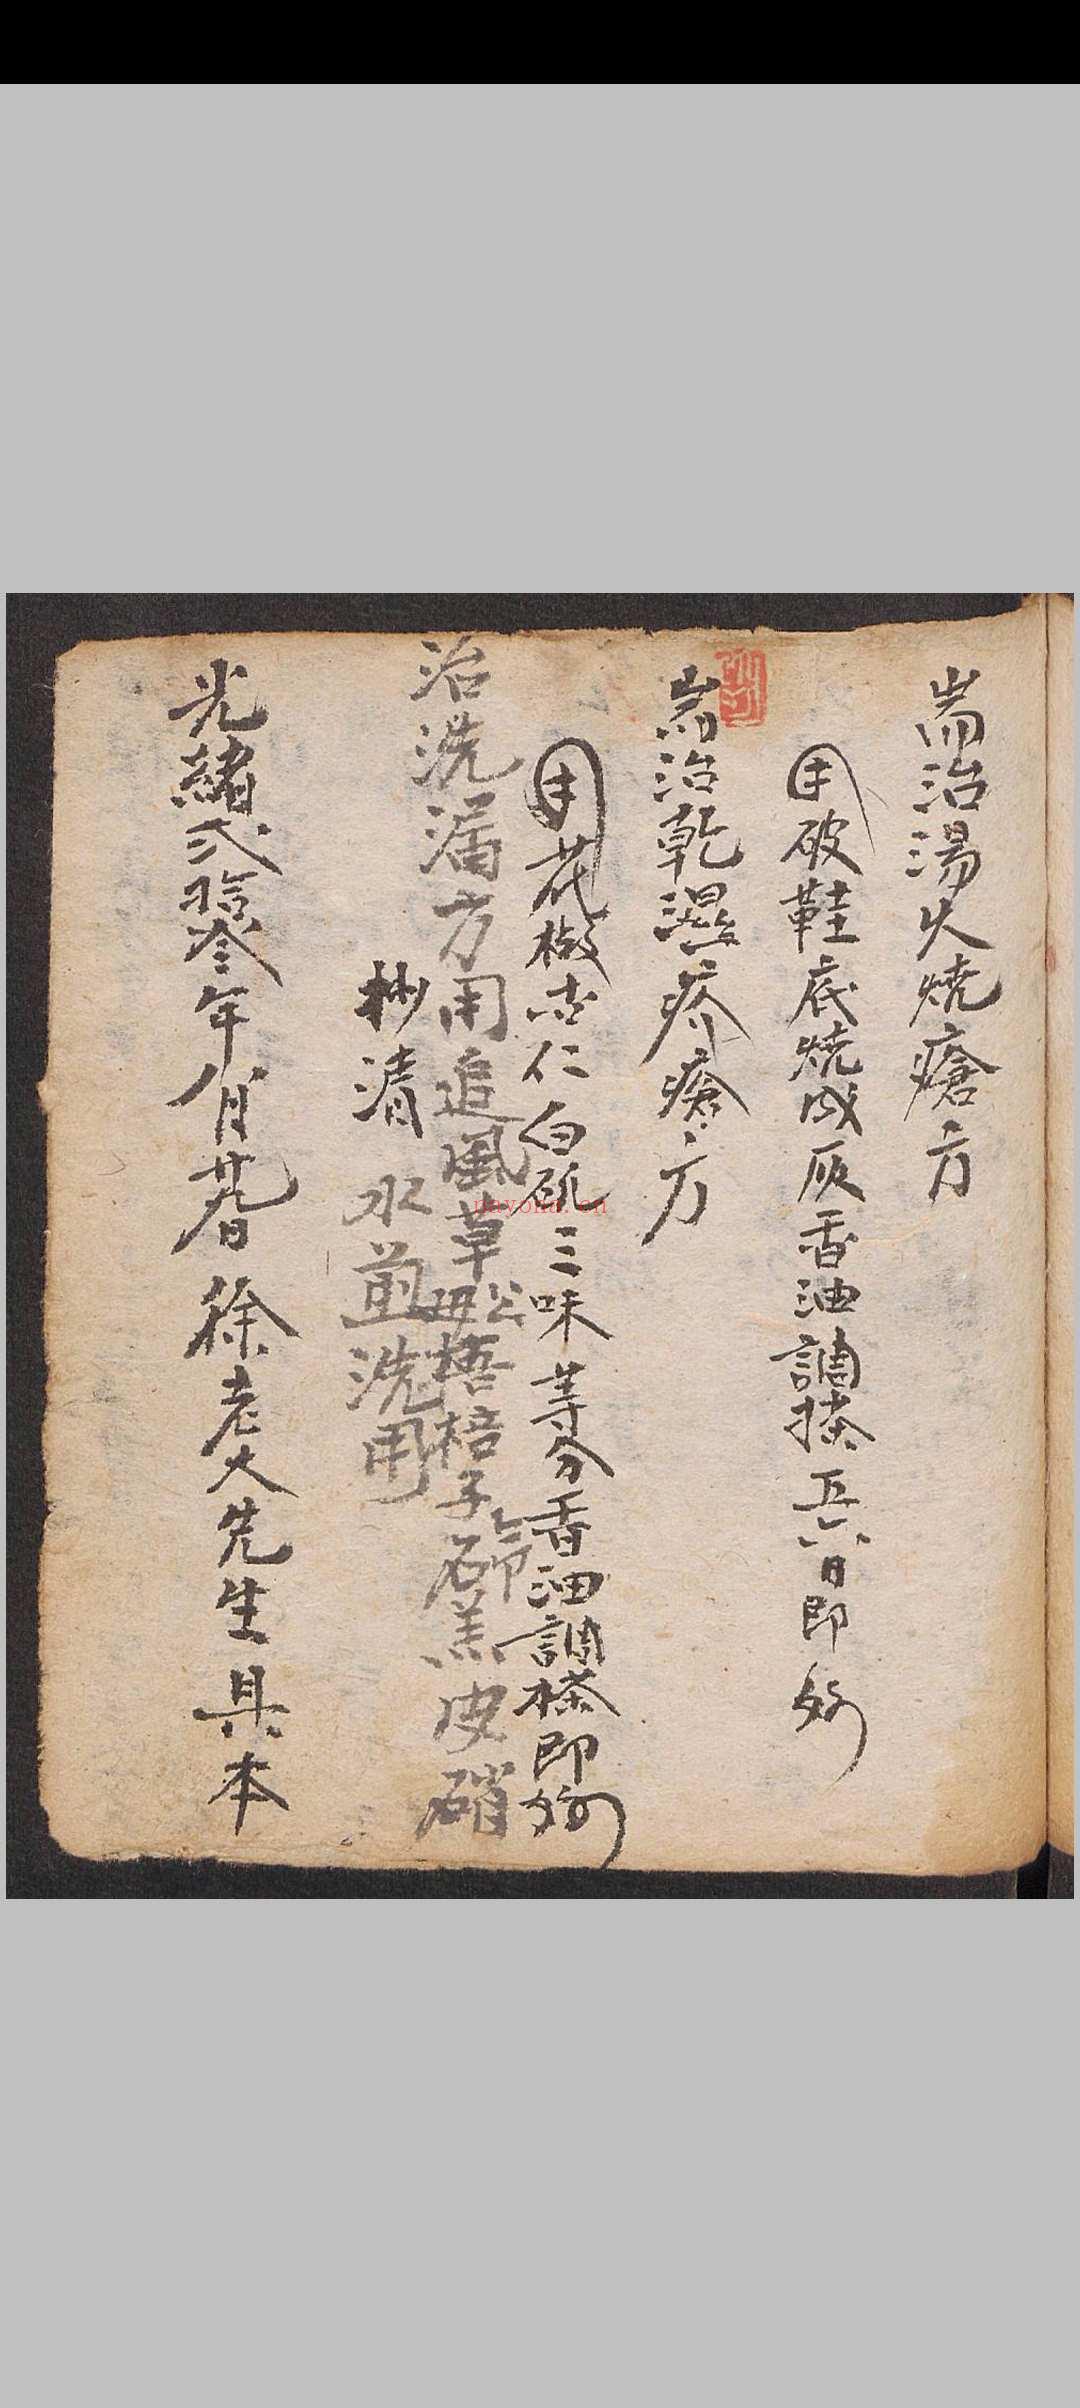 耑治湯火燒瘡方
用破鞋底燒成灰香油調搽五六日即好
耑治乾濕疥瘡方
用花椒杏仁白矾三味等分香油調搽即好
治洗漏方用追風草公母梧棓子石羔皮硝
秒清水煎洗用
光緒弍拾叁年八月廿日徐老大先生具本
nayona.cn